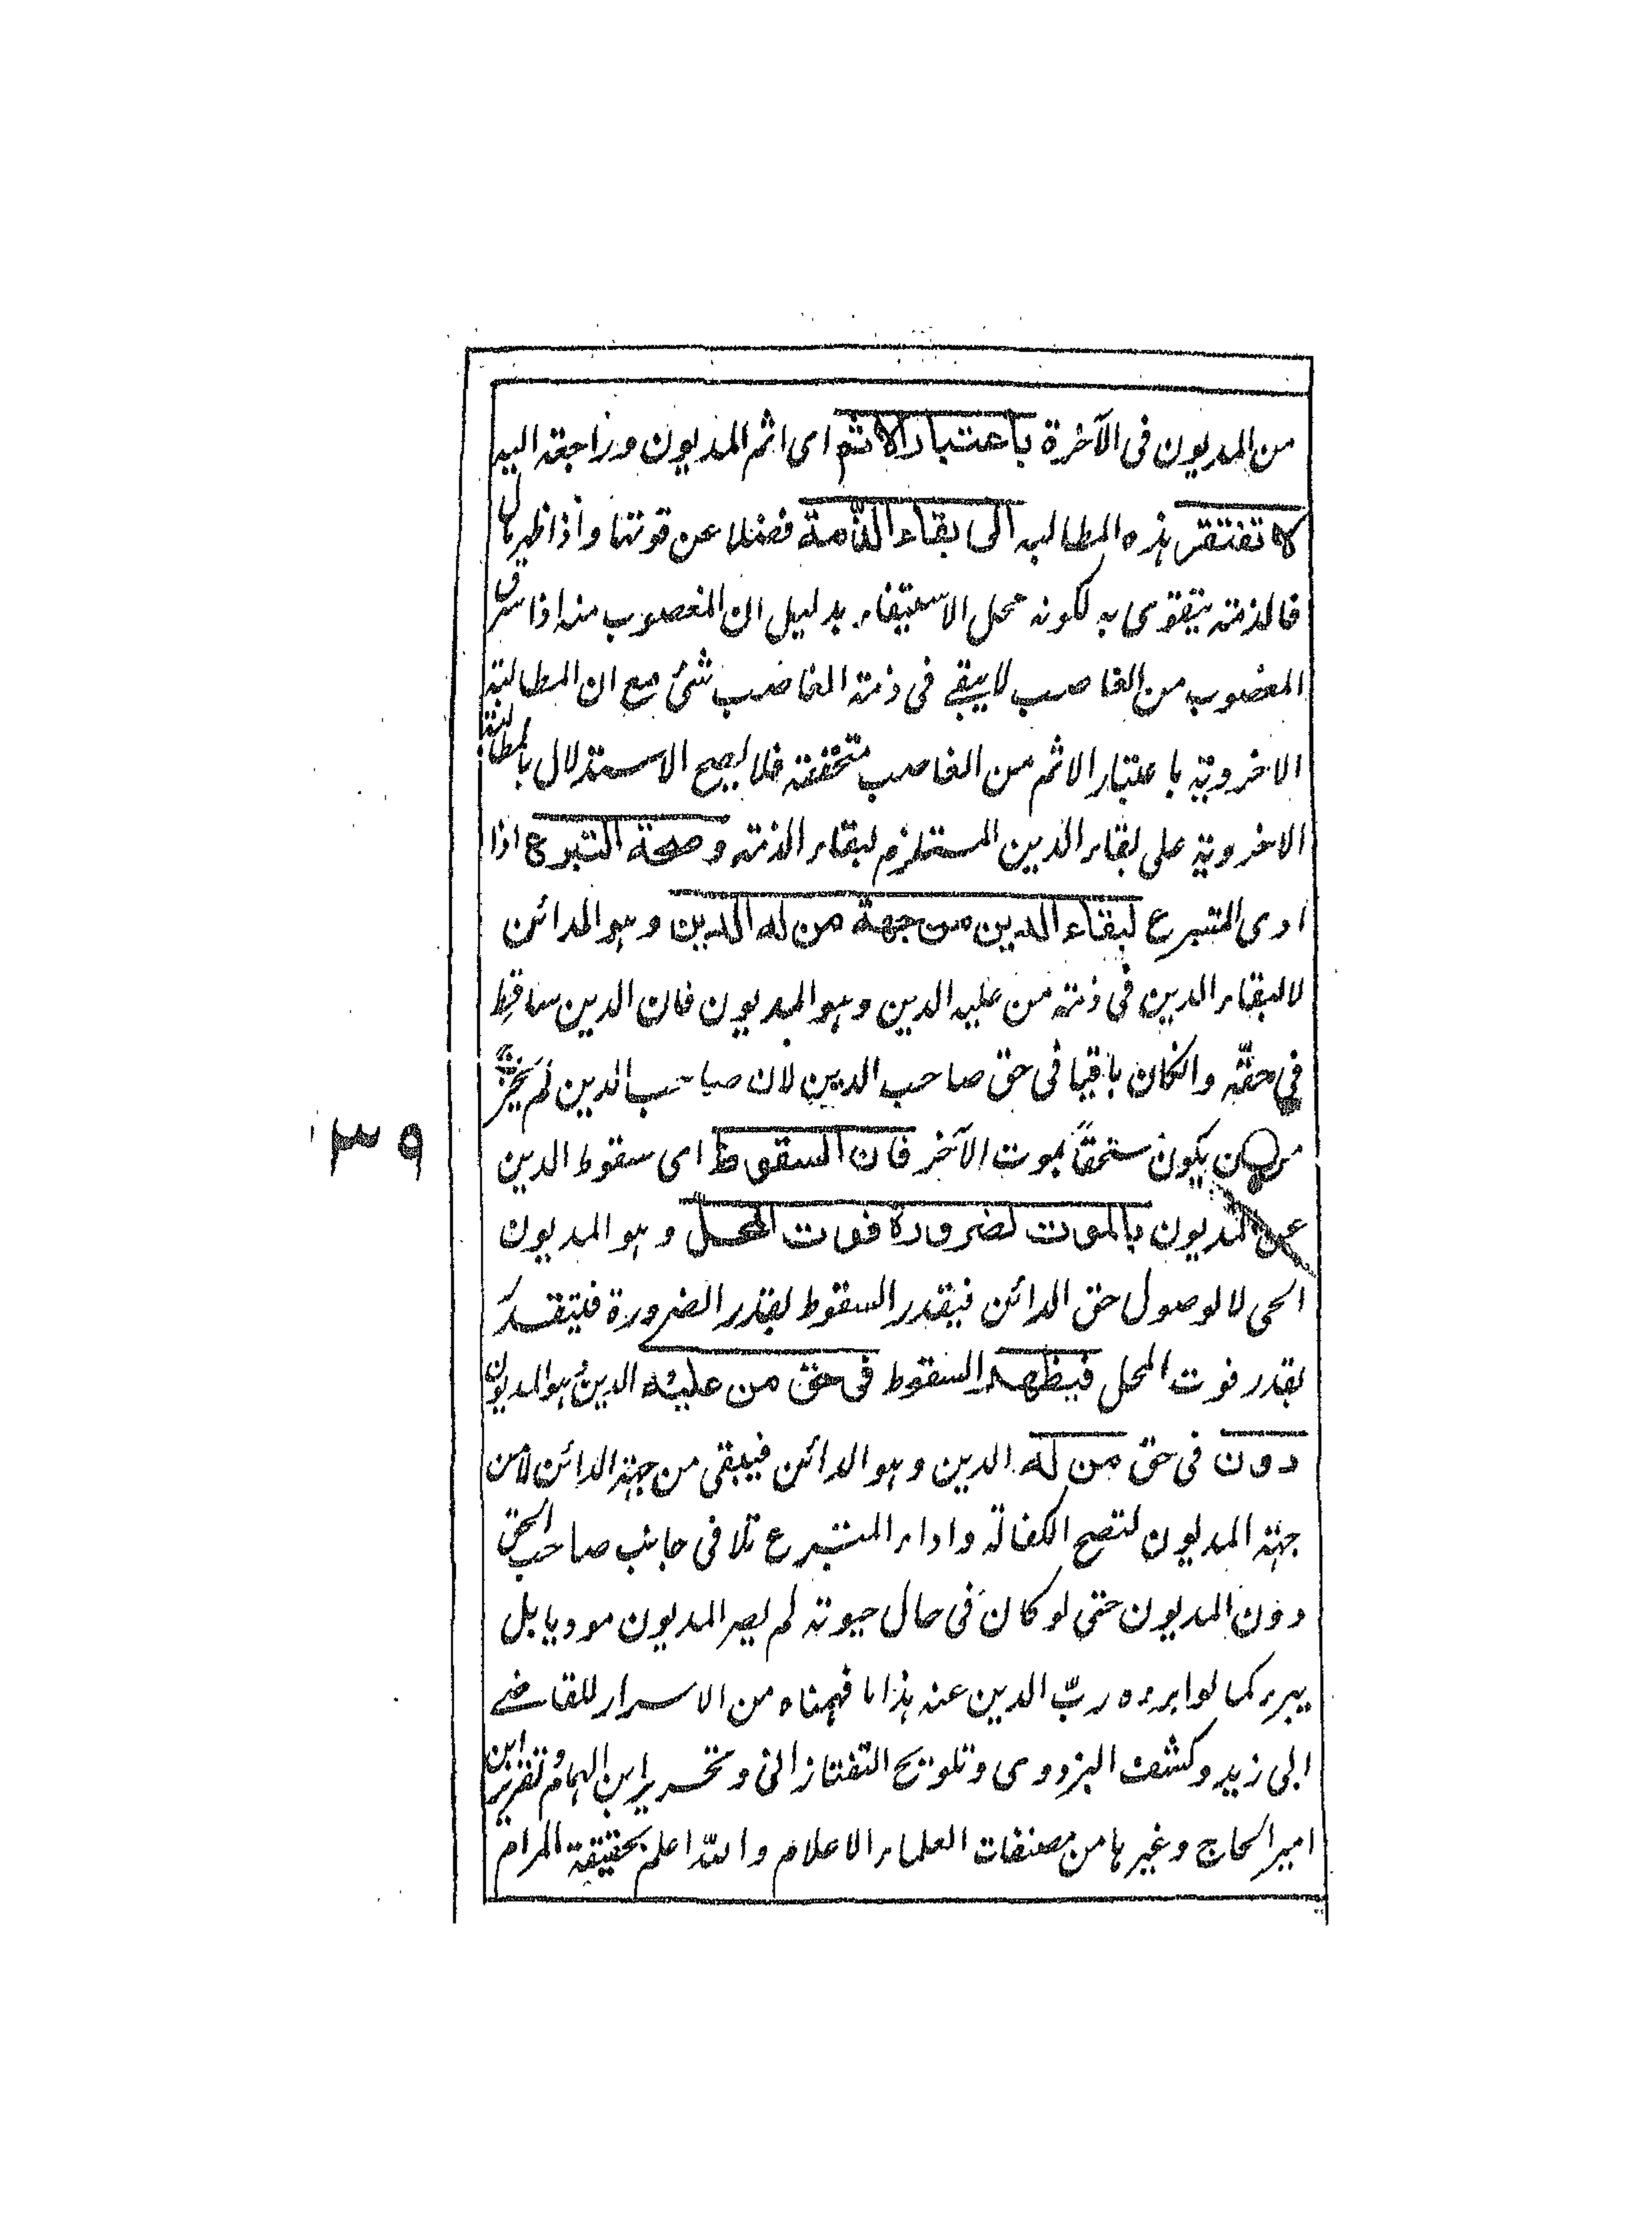 من المديون فى الآخرة باعتبار الاثم اى اثم المديون وراجعة اليه
لا تفتقر هذه المطالبه الى بقاء الذمة فضلا عن قوتها واذا ظهر مال
فالذمة يتقوى به لكونه محل الاستيفاء بدليل ان المغصوب منه اذا سرق
المغصوب من الغاصب لا يبقے فى ذمة الغاصب شئ مع ان المطالبة
الاخروية باعتبار الاثم من الغاصب متحققة فلا يصح الاستدلال بالمطالبة
الاخروية على بقاء الدين المستلزم لبقاء الذمة وصحة التبرع اذا
ادى المتبرع لبقاء الدين من جهة من له الدين وهو الدائن
لا لبقاء الدين فى ذمة من عليه الدين وهو المديون فان الدين ساقط
فى حقه وانكان باقيا فى حق صاحب الدين لان صاحب الدين لم يخرج
من ان يكون مستحقاً بموت الآخر فان السقوط اى سقوط الدين
عن المديون بالموت لضرورة فوت المحل وهو المديون
الحى لا لوصول حق الدائن فيقدر السقوط بقدر الضرورة فيتقدر
بقدر فوت المحل فيظهر السقوط فى حق من عليه الدين وهو المديون
دون فى حق من له الدين وهو الدائن فيبقى من جهة الدائن لا من
جهة المديون لتصح الكفالة واداء المتبرع تلا فى جانب صاحب الحق
دون المديون حتى لو كان فى حال حيوته لم يصر المديون موديا بل
يبرء كما لو ابرءه ربّ الدين عنه هذا ما فهمناه من الاسرار للقاضے
ابى زيد وكشف البزدوى وتلويح التفتازانى وتحرير ابن الهمام وتقرير ابن
امير الحاج وغيرها من مصنفات العلماء الاعلام والله اعلم بحقيقة المرام
٣٩